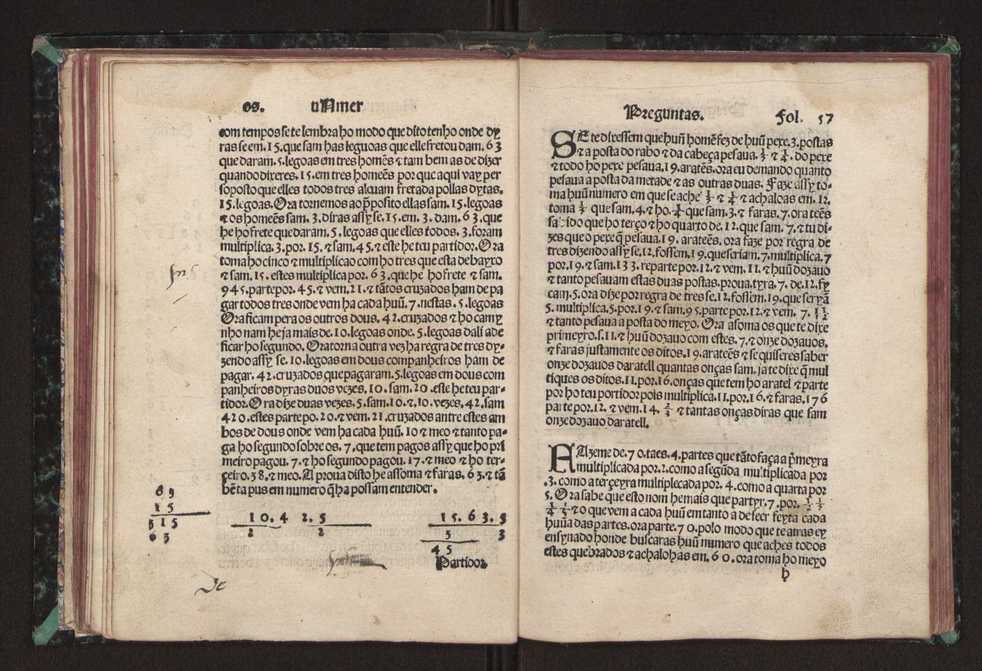 os. uNmer
com tempos se te lembra ho modo que dito tenho onde dy
ras se em.15.que sam has leguoas que elle fretou dam.63
que daram.5.legoas em tres homẽs ⁊ tam bem as de dizer
quando dixeres.15.em tres homẽes por que aqui vay per
soposto que elles todos tres aluam fretada pollas dytas.
15.legoas.Ora tornemos ao p̃posito ellas sam.15.legoas
⁊ os homeẽs sam.3.diras assy se.15.em.3.dam.63.que
he ho frete que daram.5.legoas que elles todos.3.foram
multiplica.3.por.15.⁊ sam.45.⁊ este he teu partidor.Ora
toma ho cinco ⁊ multiplicao com ho tres que esta debayxo
⁊ sam.15.estes multiplica por.63.que he ho frete ⁊ sam.
945.parte por.45.⁊ vem.21.⁊ tãtos cruzados ham de pa
gar todos tres onde vem ha cada huũ.7.nestas.5.legoas
Ora ficam pera os outros dous.42.cruzados ⁊ ho camy
nho nam he ja mais de.10.legoas onde.5.legoas dali a de
ficar ho segundo.Ora torna outra vez ha regra de tres dy-
zendo assy se.10.legoas em dous companheiros ham de
pagar.42.cruzados que pagaram.5.legoas em dous com
panheiros dyras duos vezes.10.sam.20.este he teu par-
tidor.Ora dize duas vezes.5.sam.10.⁊.10.vezes.42.sam
420.estes parte po.20.⁊ vem.21.cruzados antre estes am
bos de dous onde vem ha cada huũ.10 ⁊ meo ⁊ tanto pa-
ga ho segundo sobre os.7.que tem pagos assy que ho pri
meiro pagou.7.⁊ ho segundo pagou.17.⁊ meo ⁊ ho ter-
çeiro.38.⁊ meo.A proua disto he assoma ⁊ faras.63.⁊ tã
bẽ ta pus em numero q̃ ha possam entender.
15
515
63
10.4 2.5
2 2
15.63.5
5 3
45
Partidor
Preguntas. Fol. 57
SE te dixessem que huũ homẽ fez de huũ pexe.3.postas
⁊ a posta do rabo ⁊ da cabeça pesaua.⅓ ⁊ ¼.do pexe
⁊ todo ho pexe pesaua.19.aratẽs.ora eu demando quanto
pesaua a posta da metade ⁊ as outras duas.Faze assy to-
ma huũ numero em que se ache ⅓ ⁊ ¼ ⁊ achaloas em.12.
toma ⅓ que sam.4.⁊ ho.¼ que sam.3.⁊ faras.7.ora teẽs
sabido que ho terço ⁊ ho quarto de.12.que sam.7.⁊ tu di-
zes que o pexe q̃ pesaua.19.arateẽs.ora faze por regra de
tres dizendo assy se.12.fossem.19.que seriam.7.multiplica.7
por.19.⁊ sam 133.reparte por.12.⁊ vem.11.⁊ huũ dozauo
⁊ tanto pesauam estas duas postas.proua.tyra.7.de.12.fy
cam.5.ora dize por regra de tres se.12.fossem.19.que seryã
5.multiplica.5.por.19.⁊ sam.95.parte por.12.⁊ vem.7.11/12
⁊ tanto pesaua a posta do meyo.Ora asoma os que te dixe
primeyro.s.11.⁊ huũ dozauo com estes.7.⁊ onze dozauos.
⁊ faras justamente os ditos.19.arateẽs ⁊ se quiseres saber
onze dozauos daratell quantas onças sam.ja te dixe q̃ mul
tiques os ditos.11.por.16.onças que tem ho aratel ⁊ parte
por ho teu portidor pois multiplica.11.por.16.⁊ faras.176
parte por.12.⁊ vem.14.⅔ ⁊ tantas onças diras que sam
onze dozauo daratell.
FAlzeme de.70.taes.4.partes que tãto faça a p̃meyra
multiplicada por.2.como a segũda multiplicada por
.3.como a terçeyra multiplecada por.4.como a quarta por
5.Ora sabe que esto nom he mais que partyr.7.por.½ ⅓
¼ ⅕ ⁊ o que vem a cada huũ em tanto a de seer feyta cada
huũa das partes.ora parte.70.polo modo que te atras ey
ensynado honde buscaras huũ numero que aches todos
estes quebrados ⁊ achalohas em.60.ora toma ho meyo
h